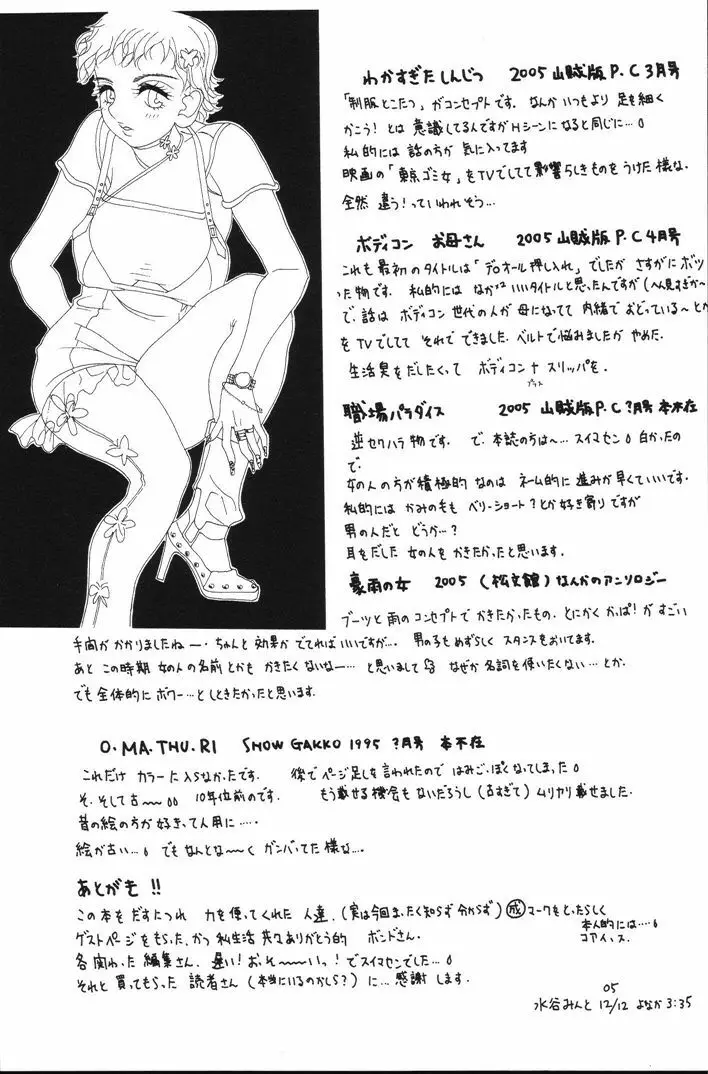 わかすぎたしんじつ　2005 山賊版 P.C 3月号
「制服とこたつ」がコンセプトです。なんかいつもより足を細く
かこう！とは意識してるんですがHシーンになると同じに…。
私的には話の方が気に入ってます
映画の「東京ゴミ女」をTVでしてて影響らしきものをうけた様な。
全然違う！っていわれそう…
ボディコンお母さん　2005 山賊版 P.C 4月号
これも最初のタイトルは「デロオール押し入れ」でしたがさすがにボツ
った物です。私的にはなかなかいいタイトルと思ったんですが
で、話はボディコン世代の人が母になってて内緒でおどっている〜とか
をTVでしてて それでできました。ベルトで悩みましたがやめた。
生活臭をだしたくって ボディコン＋スリッパを。
プラス
職場パラダイス　2005 山賊版 P.C ?月号 本不在
逆セクハラ物です。で、本誌の方は〜…スイマセン。白かったの
で。
女の人の方が積極的なのはネーム的に進みが早くていいです。
私的にはかみのもベリーショート？とか好き寄りですが
男の人だとどうか…？
耳をだした女の人をかきたかったと思います。
豪雨の女　2005（松文館）なんかのアンソロジー
ブーツと雨のコンセプトでかきたかったもの。とにかくかっぱ！がすごい
手間がかかりましたねー…ちゃんと効果がでてればいいですが…。男の子もめずらしくスタンスもおいてます。
あと この時期 女の人の名前とかも かきたくないなー…と思いまして なぜか名詞を使いたくない…とか。
でも全体的にボワー…としときたかったと思います。
O.MA.THU.RI　SHOW GAKKO 1995 ?月号 本不在
これだけカラーに入らなかったです。後でページ足しを言われたので はみごっぽくなってしまった。
そ、そして古〜 10年位前のです。もう載せる機会もないだろうし（古すぎて）ムリヤリ載せました。
昔の絵の方が好きって人用に……
絵が古い…。でもなんとな〜く ガンバってた様な…。
あとがき!!
この本をだすにつれ 力を使ってくれた人達、（実は今回まったく知らず分からず）成マークをとったらしく
本人的には…。
コアイッス。
ゲストページをもらった、かつ私生活共々ありがとう的 ボンドさん。
各関わった編集さん、遅い！お〜そ〜〜いっ！でスイマセンでした…。
それと買ってもらった読者さん（本当にいるのかしら？）に…感謝します。
05
水谷みんと 12/12 よなか3:35